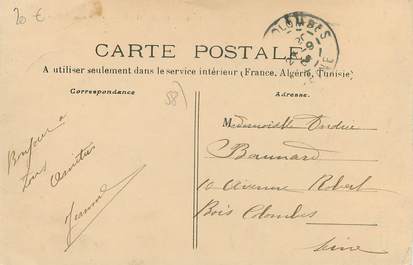 20 €
COLOMBES
CARTE POSTALE
A utiliser seulement dans le service intérieur (France, Algérie, Tunisie)
Correspondance
Adresse.
58)
Bonjour a
tous
Amitiés
Jeanne
Mademoiselle Andrée
Baunard
10 Avenue Robert
Bois Colombes
Seine